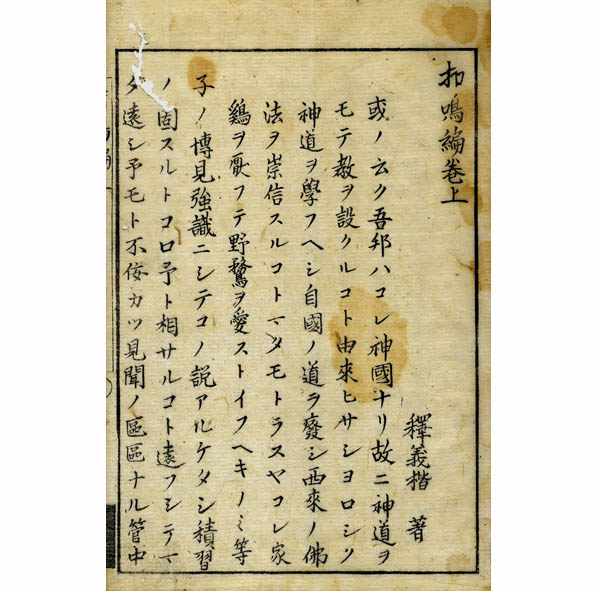 扣鳴編卷上
釋義楷 著
或ノ云ク吾邦ハコレ神國ナリ故ニ神道ヲ
モテ教ヲ設クルコト由來ヒサシヨロシク
神道ヲ學フヘシ自國ノ道ヲ廢シ西來ノ佛
法ヲ崇信スルコトマタモトラスヤコレ家
鷄ヲ厭フテ野鶩ヲ愛ストイフヘキノミ等
子ノ博見強識ニシテコノ説アルケタシ積習
ノ固スルトコロ予ト相サルコト遠フシテマ
タ遠シ予モト不侫カツ見聞ノ區區ナル管中